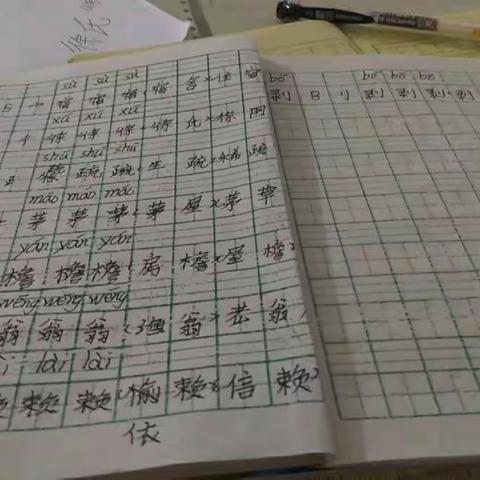 sù sù sù
宿 宿 宿 宿 舍 住 宿
xú xú xú
徐 徐 徐 徐 氏 徐
shū shū shū
疏 疏 生 疏 疏
máo máo máo
茅 茅 茅 茅 屋 茅 草
yán yán yán
檐 檐 檐 房 檐 屋 檐
wēng wēng wēng
翁 翁 翁 渔 翁 老 翁
lài lài
赖 赖 赖 赖 信 赖
依
bō bō bō bō
剥 刂 剥 剥 剥 剥